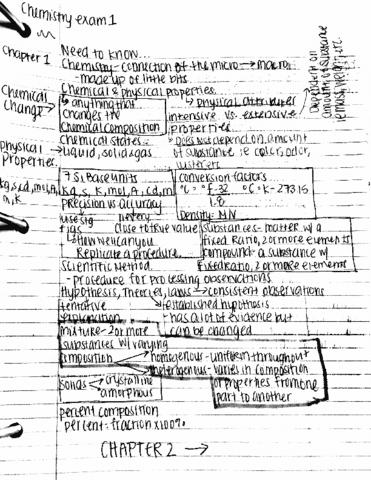 Chemistry exam 1
Chapter 1
Need to know...
Chemistry - connection of the micro → macro
- made up of little bits.
Chemical & physical properties.
Chemical Change
↳ anything that changes the Chemical composition
↳ physical attributes
intensive vs. extensive properties.
depends on amount of substance ie mass,
↳ Does not depend on amount of substance ie color, odor,
Chemical states -
liquid, solid & gas
Physical Properties.
7 SI Base units
Kg, s, K, mol, A, cd, m
conversion factors
°C = °F-32
1.8
°C = K - 273.15
Density: M/V
precision vs accuracy
use sig figs
close to true value
↳ How well can you Replicate a procedure.
substances - matter w/ a fixed Ratio, 2 or more elements
compound - a substance w/ fixed ratio, 2 or more elements
Scientific Method
- procedure for processing observations
Hypothesis, Theories, laws → consistent observations
tentative explanation
↳ established hypothesis
- has a lot of evidence but can be changed
mixture - 2 or more substances w/ varying composition
homogenous - uniform throughout
heterogenous - varies in composition or properties from one part to another
solids
crystalline
amorphous
percent composition
percent = fraction x 100%
CHAPTER 2 →